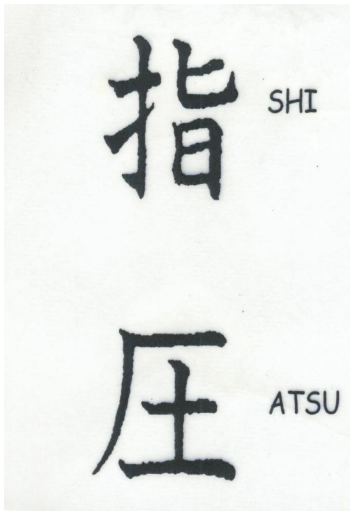 指 SHI
圧 ATSU